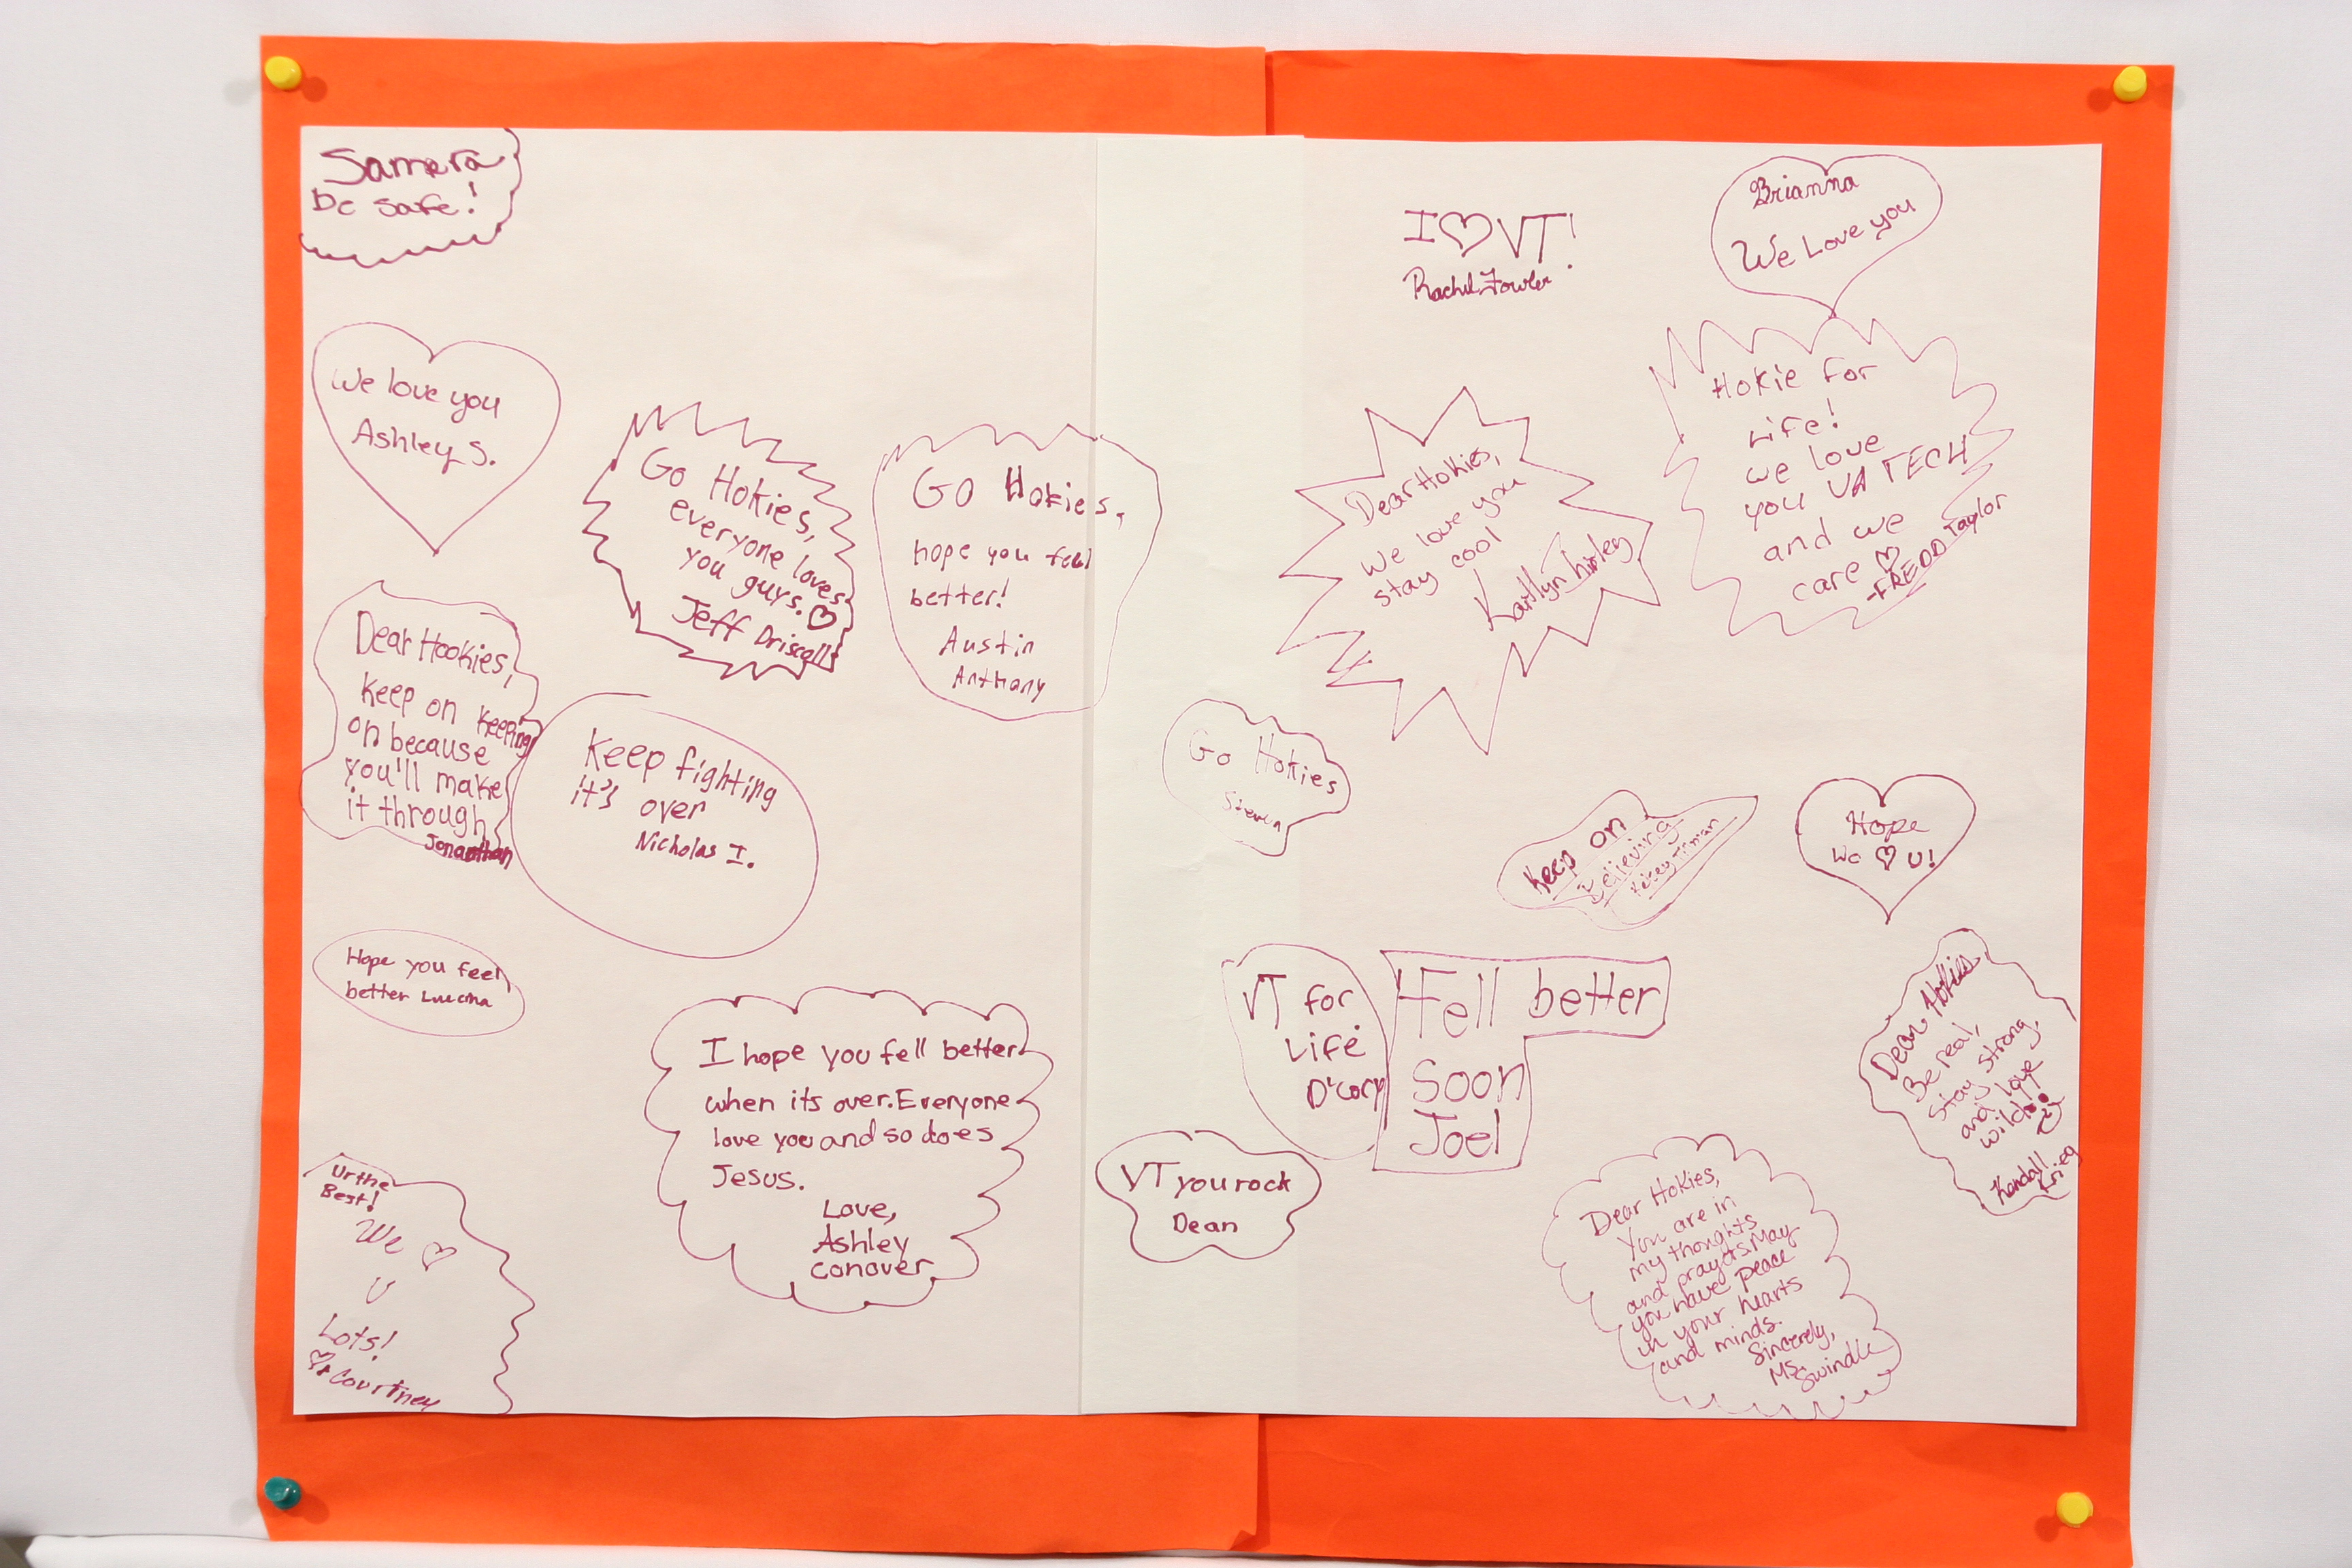 Samera
be safe!
We love you
Ashley S.
Go Hokies,
everyone loves
you guys. ♡
Jeff Driscalls
Go Hokies,
hope you feel
better!
Austin
Anthany
Dear Hookies,
Keep on keeping
on because
you'll make
it through
Jonanthan
Keep fighting
it's over
Nicholas I.
Hope you feel
better
I hope you fell better
when its over. Everyone
love you and so does
Jesus.
Love,
Ashley
conover
Ur the
Best!
We ♡
U
Lots!
♡ Courtney
I ♡ VT!
Rachel Fowler
Brianna
We Love you
Dear Hokies,
We love you
stay cool
Hokie for
Life!
we love
you VA TECH
and we
care ♡
-FREDD Taylor
Go Hokies
Keep on
Believing
Hope
We ♡ U!
VT for
Life.
D'cory
Fell better
Soon
Joel
VT you rock
Dean
Dear Hokies,
Be real,
stay strong,
and love
wild!
Kendall
Krieg
Dear Hokies,
You are in
my thoughts
and prayers. May
you have peace
in your hearts
and minds.
Sincerely,
Ms. Swindle